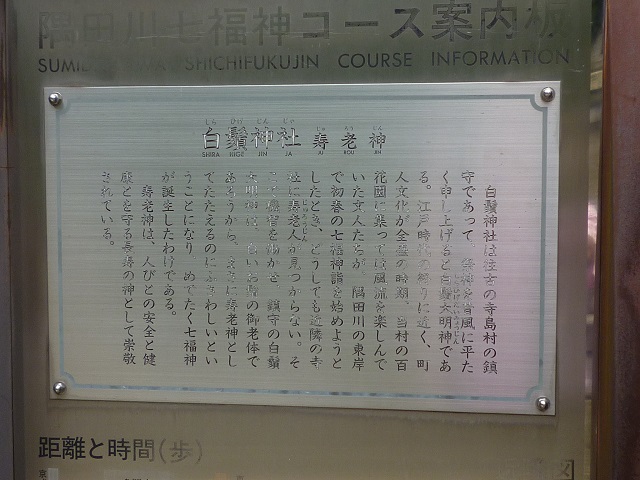 隅田川七福神コース案内板
SHICHIFUKUJIN COURSE INFORMATION
しら ひげ じん じゃ じゅ ろう じん
白鬚神社 寿老神
SHIRA HIGE JIN JA JU ROU JIN
白鬚神社は往古の寺島村の鎮
守であって、祭神を昔風に平た
く申し上げると白鬚大明神であ
る。江戸時代の終りに近く、町
人文化が全盛の時期、当村の百
花園に集っては風流を楽しんで
いた文人たちが、隅田川の東岸
で初春の七福神詣を始めようと
したとき、どうしても近隣の寺
社に寿老人が見つからない。そ
こで機智を働かせ、鎮守の白鬚
大明神は、白いお鬚の御老体で
あろうから、まさに寿老神とし
てたたえるのにふさわしいとい
うことになり、めでたく七福神
が誕生したわけである。
寿老神は、人びとの安全と健
康とを守る長寿の神として崇敬
されている。
距離と時間(歩)